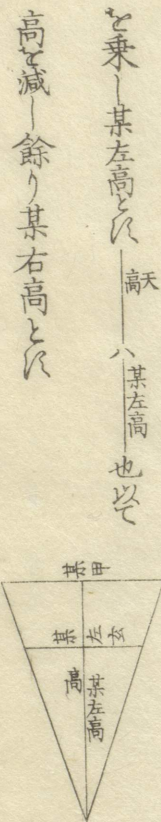 を乗し某左高とす
天高
ハ
某左高
也以て
高を減し餘り某右高とす
某甲
某左玄
高
某左高